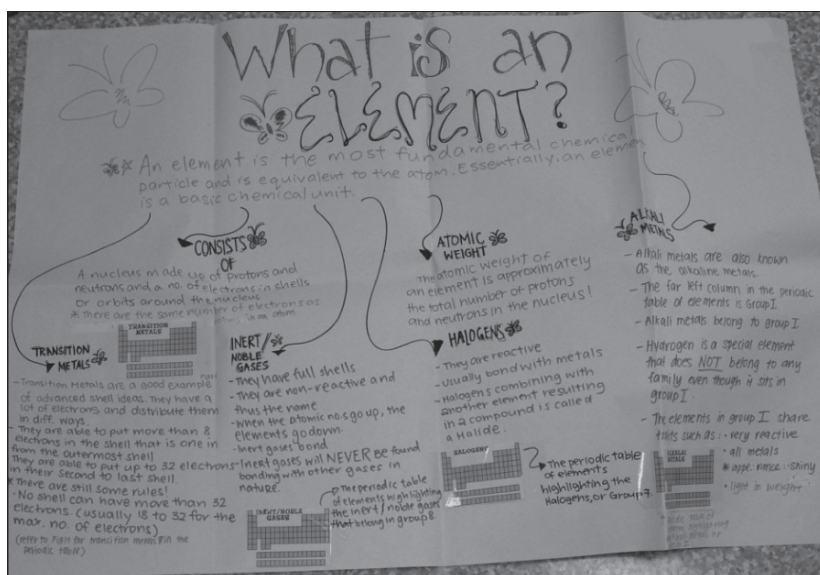 What is an
ELEMENT?
An element is the most fundamental chemical
particle and is equivalent to the atom. Essentially, an elemen
is a basic chemical unit.
CONSISTS
OF
A nucleus made up of protons and
neutrons and a no. of electrons in shells
or orbits around the nucleus
* there are the same number of electrons as
in an atom
TRANSITION
METALS
TRANSITION
METALS
- Transition Metals are a good example
of advanced shell ideas. They have a
lot of electrons and distribute them
in diff. ways.
- They are able to put more than 8
electrons in the shell that is one in
from the outermost shell
They are able to put up to 32 electrons
in their second to last shell.
* There are still some rules!
- No shell can have more than 32
electrons. (usually 18 to 32 for the
max. no. of electrons)
(refer to for transition metals in the
periodic table)
INERT/
NOBLE
GASES
- They have full shells
- They are non-reactive and
thus the name
- When the atomic nos go up, the
elements go down.
- Inert gases bond
- Inert gases will NEVER be found
bonding with other gases in
nature.
INERT/NOBLE
GASES
The periodic table
of elements highlighting
the inert/noble gases
that belong in group 8.
ATOMIC
WEIGHT
The atomic weight of
an element is approximately
the total number of protons
and neutrons in the nucleus!
HALOGENS
- They are reactive
- Usually bond with metals
- Halogens combining with
another element resulting
in a compound is called
a Halide.
HALOGENS
The periodic table
of elements
highlighting the
Halogens, or Group 7.
ALKALI
METALS
- Alkali metals are also known
as the alkaline metals.
- The far left column in the periodic
table of elements is Group I
- Alkali metals belong to group I
- Hydrogen is a special element
that does NOT belong to any
family even though it sits in
group I.
- The elements in group I share
traits such as: • very reactive
• all metals
• shiny
• light in weight
ALKALI
METALS